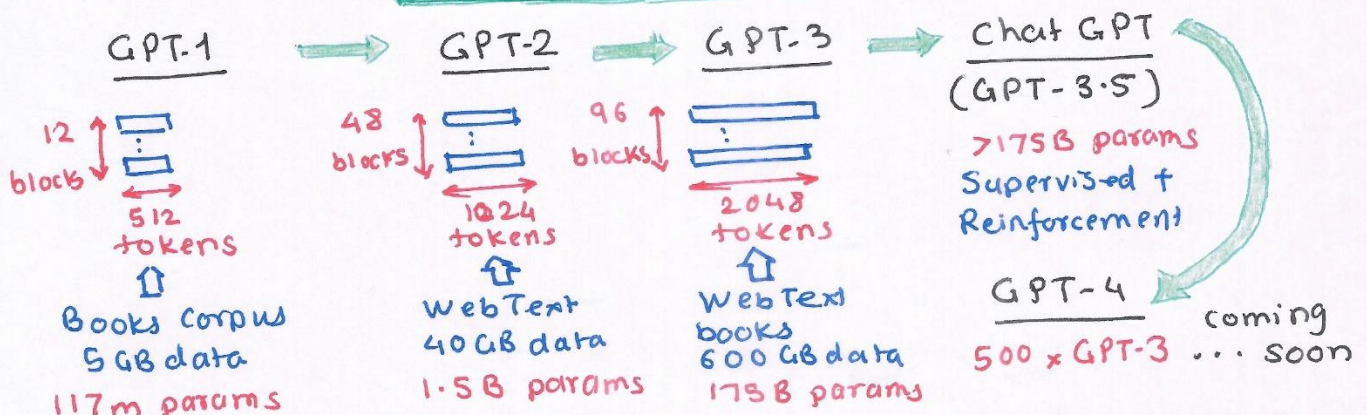 GPT-1
12
blocks
512
tokens
Books Corpus
5 GB data
117m params
GPT-2
48
blocks
1024
tokens
WebText
40 GB data
1.5 B params
GPT-3
96
blocks
2048
tokens
WebText
books
600 GB data
175B params
Chat GPT
(GPT-3.5)
>175B params
Supervised +
Reinforcement
GPT-4
500 x GPT-3 ... coming
soon